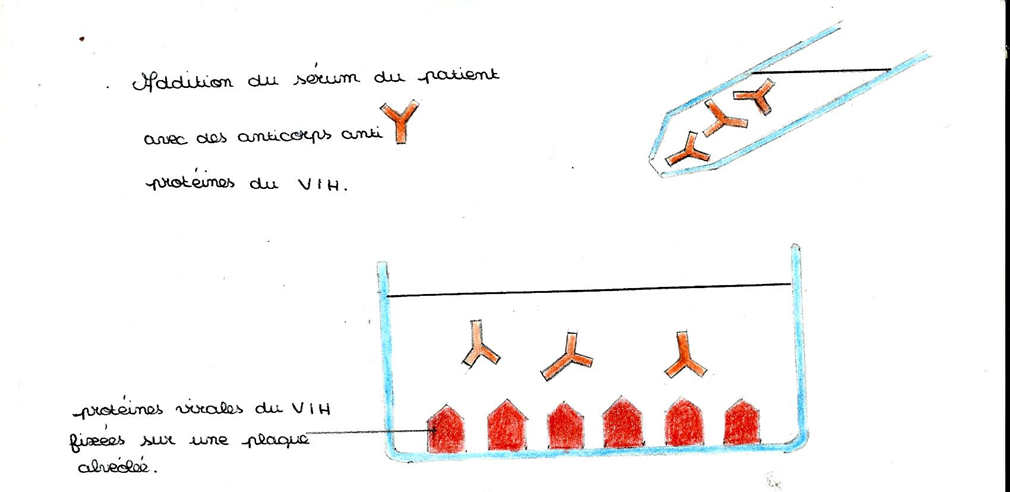 Addition du sérum du patient
avec des anticorps anti
protéines du VIH.
protéines virales du VIH
fixées sur une plaque
alvéolée.